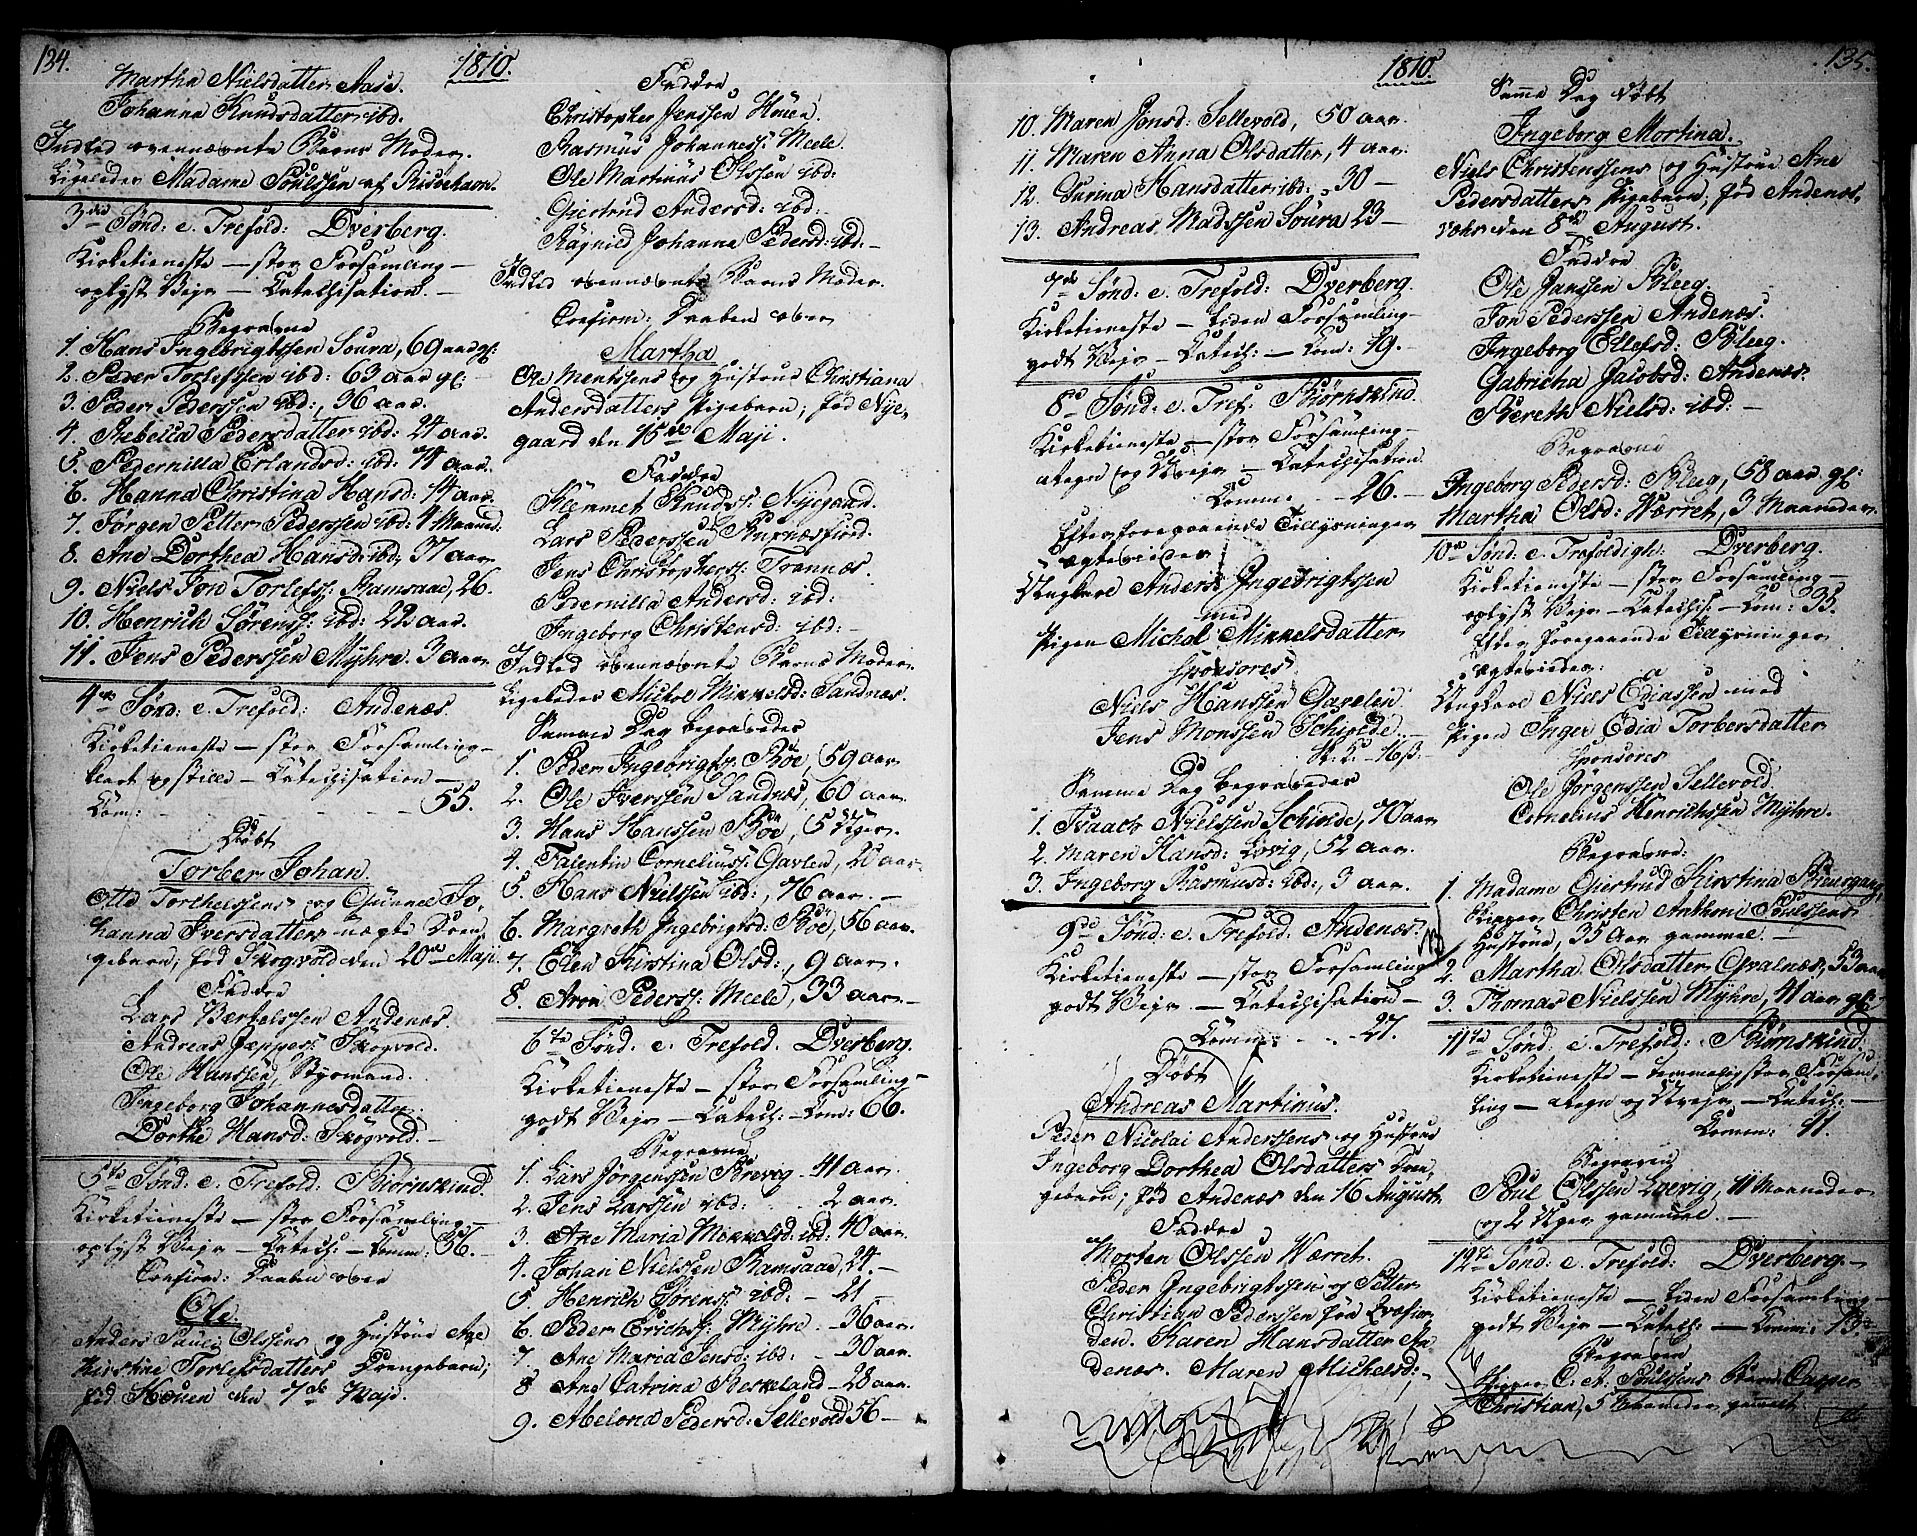 134.
1810.
Martha Nielsdatter Aase.
Johanna Knudsdatter ibd.
Indled ovennævnte Barns Moder.
Ligeledes Madame Poulssen af Risøehavn.
3die Sønd: e. Trefold: Dverberg.
Kirketieneste – stor Forsamling –
oplyst Veir – Catechisation. –
Begravne
1. Hans Ingebrigtssen Soura, 69 aar gl:
2. Peder Torlefssen ibd: 63 aar gl: –
3. Peder Pederssen ibd:, 36 aar.
4. Rebecca Pedersdatter ibd: 24 aar.
5. Pedernilla Erlandsd: ibd: 74 aar.
6. Hanna Christina Hansd: 14 aar.
7. Jørgen Petter Pederssen ibd: 4 Maaned.
8. Ane Dorthea Hansd: ibd:, 37 aar
9. Niels Jord Torlefs: Ramsaae, 26.
10. Henrich Sørens: ibd: 22 aar.
11. Jens Pederssen Myhre. 3 aar
4de Sønd: e. Trefold: Andenæs.
Kirketieneste – stor Forsamling –
klart og stille – Catechisation –
Com: – – – – 55.
Døbt
Torber Johan.
Otto Torchelssens og Gunnel Jo-
hanna Iversdatters uægte Dren-
gebarn, fød Skogvold den 20de Maji
Faddre
Lars Bertelssen Andenæs.
Andreas Jeppes: Skogvold.
Ole Hanssen, Styrmand.
Ingeborg Johannesdatter.
Dorthe Hansd: Skogvold. –
5te Sønd: e. Trefold: Biørnskind.
Kirketieneste – stor Forsamling –
oplyst Veir – Catech: – Comm: 36. –
Confirm: Daaben over
Ole.
Anders Olssens og Hustrue Ane
Kirstine Torlefsdatters Drengebarn;
fød Houen den 7de Maji.
Faddre
Christopher Jenssen Houen.
Rasmus Johanness: Meele.
Ole Martinus Olssen ibd:
Giertrud Andersd: ibd: –
Ragnild Johanna Pedersd: ibd: –
Indled ovennævnte Barns Moder.
Confirm: Daaben over
Martha
Ole Mentssens og Hustrue Christiana
Andersdatters Pigebarn; fød Nye-
gaard den 15de Maji.
Faddre
Klemmet Knuds: Nyegaard.
Lars Pederssen
Jens Christophers: Trannæs.
Pedernilla Andersd: ibd:
Ingeborg Christensd: ibd: –
Indled ovennævnte Barns Moder.
Ligeledes Michol Mikkelsd: Sandnæs.
Samme Dag begravedes
1. Peder Ingebrigts: Bøe, 59 aar
2. Ole Iverssen Sandnæs, 60 aar.
3. Hans Hanssen Bøe, 5 Uger.
4. Falentin Cornelius: Gavlen, 20 aar
5. Hans Nielssen ibd:, 76 aar. –
6. Margreth Ingebrigtsd: Bøe, 56 aar.
7. Elen Kirstina Olsd:, 9 aar.
8. Aron Peders: Meele, 33 aar. –
6te Sønd: e. Trefold: Dverberg.
Kirketieneste – stor Forsamling –
godt Veir – Catech: – Com: 66.
Begravne
1. Lars Jørgenssen Breivig – 41 aar.
2. Jens Larssen ibd: 2 aar.
3. Ane Maria Mikkelsd: ibd: 40 aar.
4. Johan Nielssen Ramsaae, 24. –
5. Henrich Sørens: ibd: – 21 –
6. Peder Erichs: Myhre. – 36 aar.
7. Ane Maria Jensd: ibd: – 30 aar.
8 Ane Catrina Reskeland – 28 aar.
9. Abelona Pedersd: Sellevold 56 –
135.
1810.
10. Maren Jonsd: Sellevold, 50 aar.
11. Maren Anna Olsdatter, 4 aar.
12. Gurina Hansdatter ibd: 30 –
13. Andreas Madssen Soura 23 –
7de Sønd: e. Trefold: Dverberg.
Kirketieneste – liden Forsamling –
godt Veir – Catech: – Com: 19. –
8de Sønd: e. Tref: Biørnskind.
Kirketieneste – stor Forsamling –
Regn og Uveir – Catechisation.
Comm: – – 26. –
Efter foregaaende Tillysninger
Ægteviedes
Ungkarl Anders Ingebrigtsen
med
Pigen Michol Mikkelsdatter
Sponsores
Niels Hanssen Gavelen
Jens Monssen Schjolde. –
Samme Dag begravedes
1. Isaach Nielssen Schjolde, 70 aar
2. Maren Hansd: Lovig, 52 aar.
3. Ingeborg Rasmusd: ibd:, 3 aar.
9de Sønd: e. Trefold. Andenæs.
Kirketieneste – stor Forsamling
godt Veir – Catechisation –
Comm: – – 27.
Døbt
Andreas Martinus.
Peder Nicolai Anderssens og Hustrue
Ingeborg Dorthea Olsdatters Dren-
gebarn; fød Andenæs den 16 August
Faddre
Morten Olssen Wærret.
Peder Ingebrigtssen og Petter
Christian Pederssen fra
Karen Hansdatter An-
denæs. Maren Michelsd: –
Samme Dag døbt
Ingeborg Mortina.
Niels Christenssens og Hustrue Ane
Pedersdatters Pigebarn, fød Andenæs,
den 8de August.
Faddre
Ole Janssen Bleeg.
Jon Pederssen Andenæs.
Ingeborg Ellefsd: Bleeg.
Gabricha Jacobsd: Andenæs.
Bereth Nielsd: ibd: –
Begravne
Ingeborg Pedersd: Bleeg, 58 aar gl:
Martha Olsd: Wærret, 3 Maaneder.
10de Sønd: e. Trefoldigh: Dverberg.
Kirketieneste – stor Forsamling –
oplyst Veir – Catech: – Com: 35.
Efter foregaaende Tillysninger
Ægteviedes:
Ungkarl Niels Ediassen med
Pigen Inger Edia Torbersdatter
Sponsores
Ole Jørgenssen Sellevold
Cornelius Henrichssen Myhre.
Begravne:
1. Madame Giertrud Kirstina
Christen Anthoni Poulssens
Hustrue, 35 Aar gammel. –
2. Martha Olsdatter Qvalnæs, 53 aar
3. Thomas Nielssen Myhre, 41 aar gl:
11te Sønd: e. Trefold: Biørnskind.
Kirketieneste – temmelig stor Forsam-
ling – Regn og Uveir – Catech: –
Comm: 11.
Begraven
Poul Olssen Loevig, 11 Maaneder
og 2 Uger gammel. –
12te Sønd: e. Trefold: Dverberg. –
Kirketieneste – liden Forsamling –
godt Veir – Catech: – Comm: 13.
Begraven
C. A. Poulssens Barn Casper
Christian, 5 Maaneder gammel.